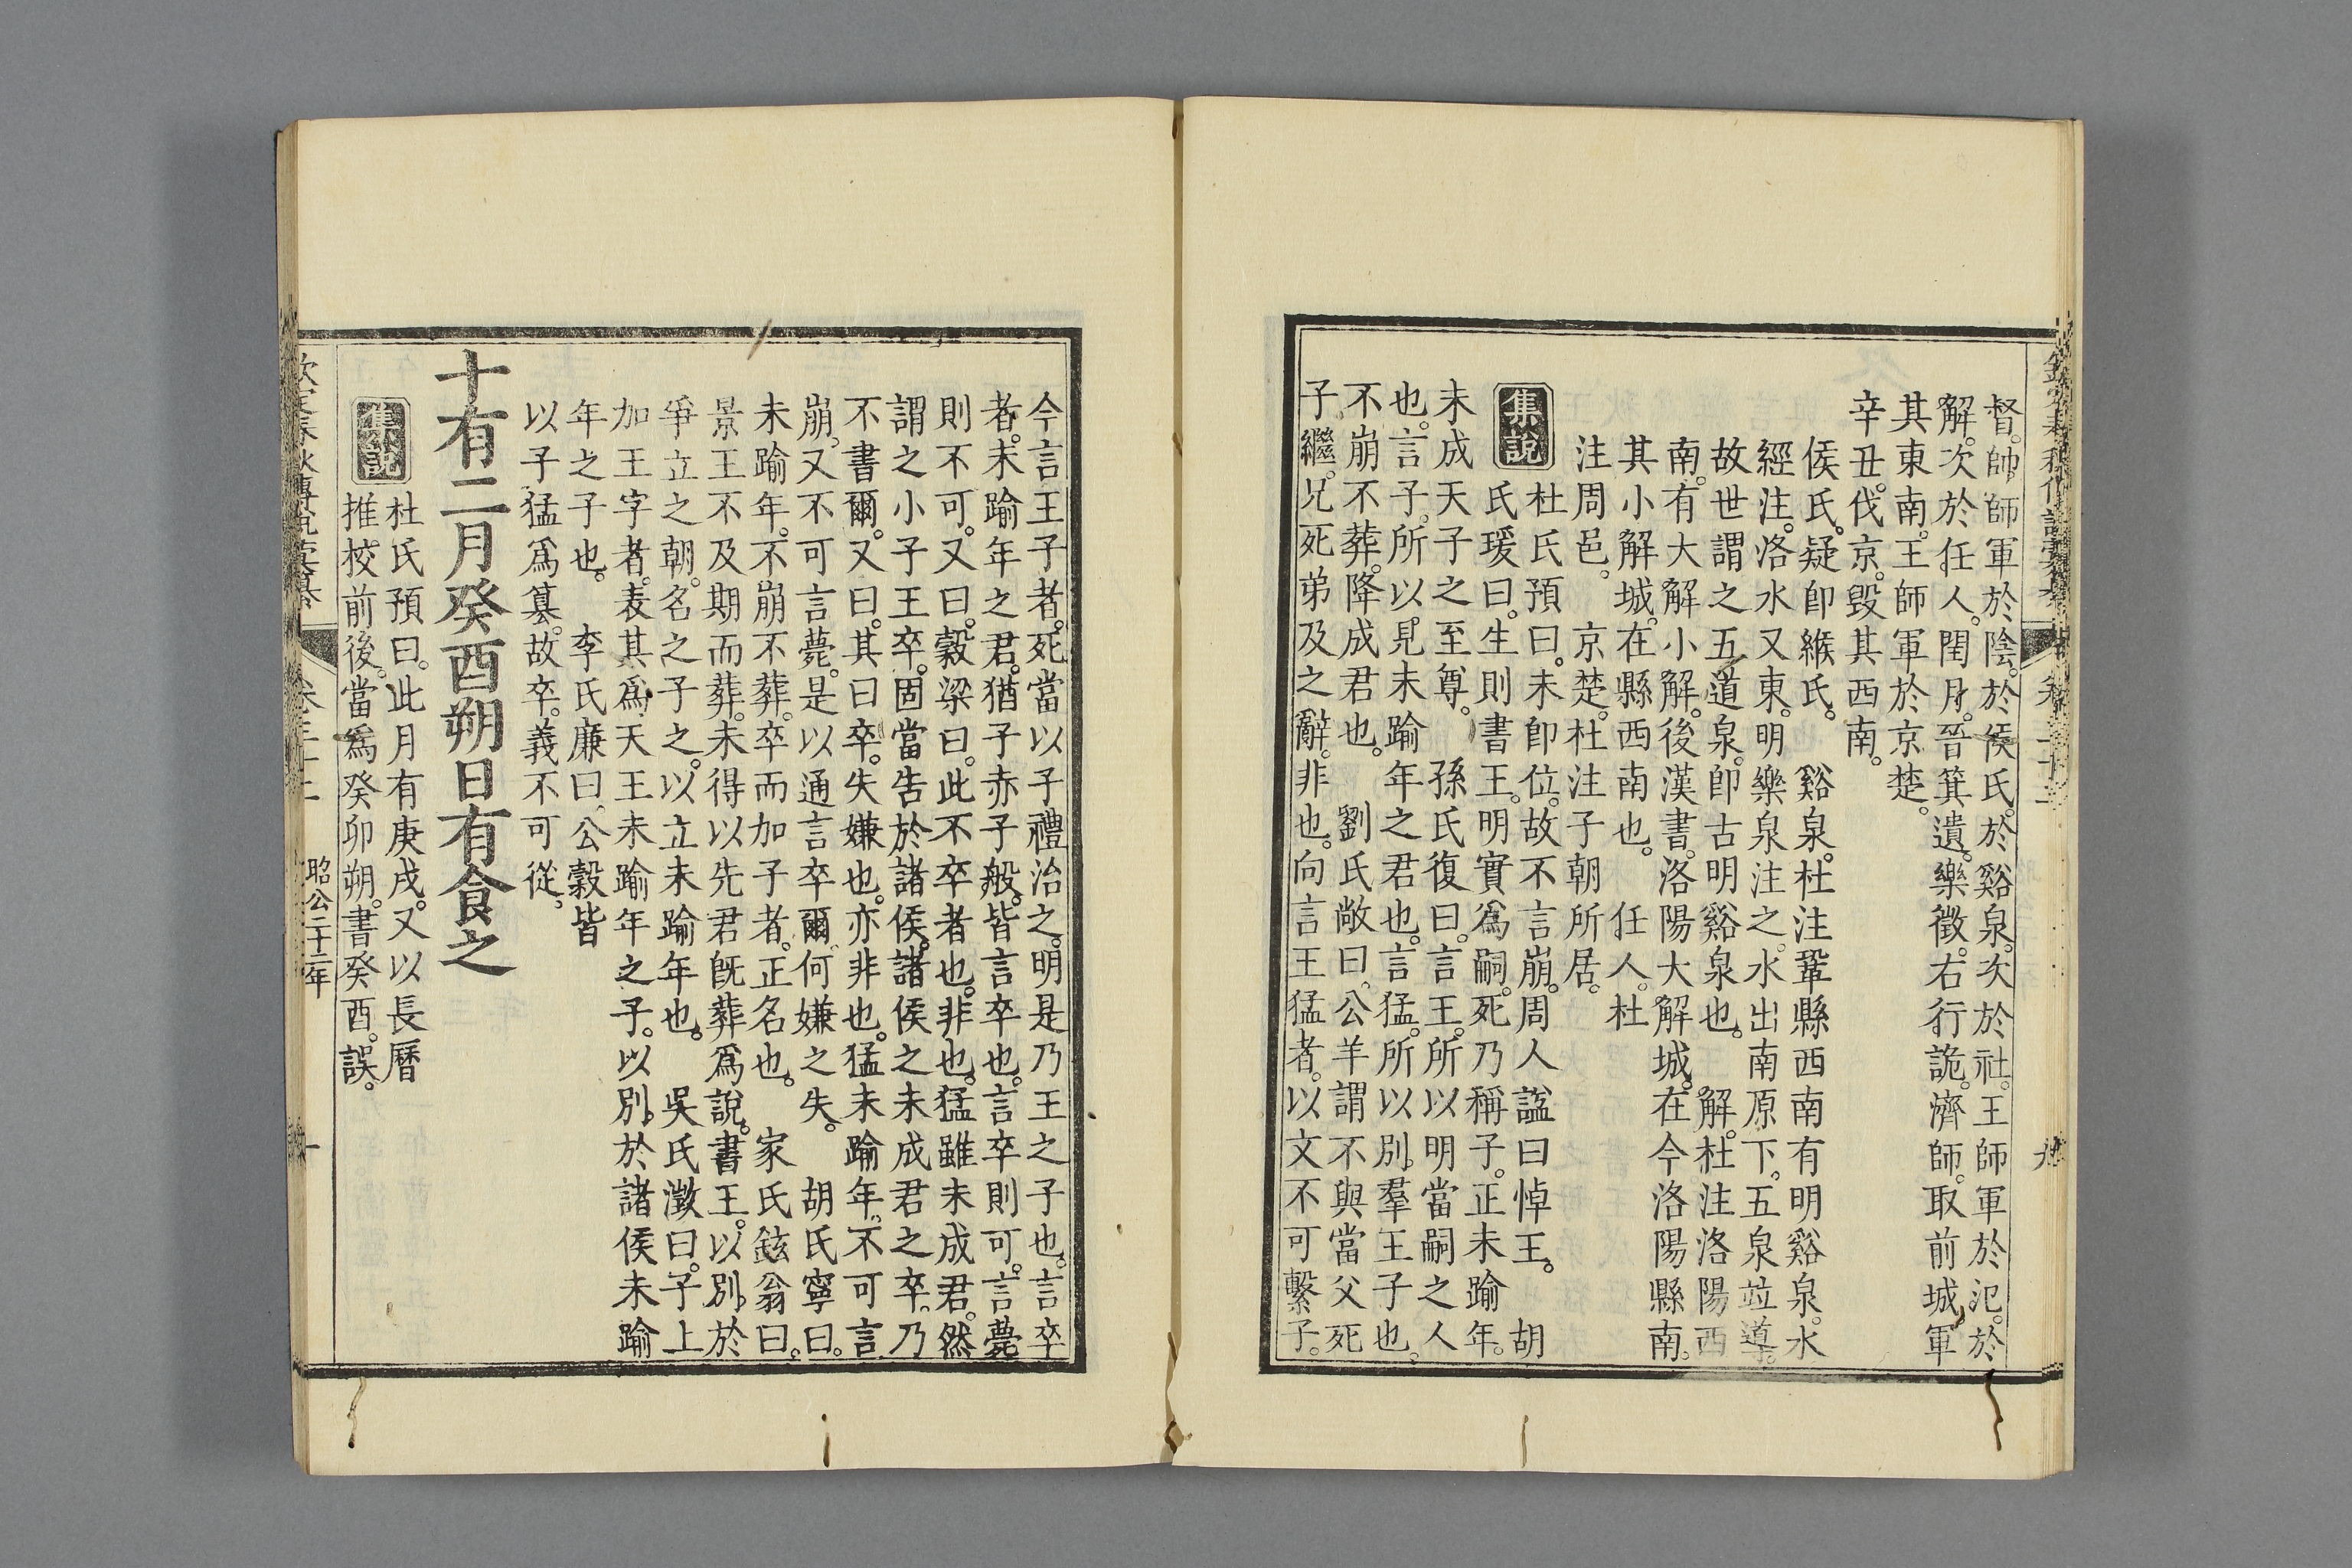 督。帥師軍於陰。於侯氏。於谿泉。次於社。王師軍於氾。於
解。次於任人。閏月。晉箕遺。樂徵。右行詭。濟師。取前城。軍
其東南。王師軍於京楚。
辛丑。伐京。毀其西南。
侯氏。疑卽緱氏。　谿泉。杜注鞏縣西南有明谿泉。水
經注。洛水又東。明樂泉注之。水出南原下。五泉竝導。
故世謂之五道泉。卽古明谿泉也。　解。杜注洛陽西
南。有大解小解。後漢書。洛陽大解城。在今洛陽縣南。
其小解城。在縣西南也。　任人。杜
注周邑。　京楚。杜注子朝所居。
集說　杜氏預曰。未卽位。故不言崩。周人諡曰悼王。　胡
氏瑗曰。生則書王。明實爲嗣。死乃稱子。正未踰年。
未成天子之至尊。　孫氏復曰。言王。所以明當嗣之人
也。言子。所以見未踰年之君也。言猛。所以別羣王子也。
不崩不葬。降成君也。　劉氏敞曰。公羊謂不與當父死
子繼。兄死弟及之辭。非也。向言王猛者。以文不可繫子。
今言王子者。死當以子禮治之。明是乃王之子也。言卒
者。未踰年之君。猶子赤子般。皆言卒也。言卒則可。言薨
則不可。又曰。穀梁曰。此不卒者也。非也。猛雖未成君。然
謂之小子王卒。固當告於諸侯。諸侯之未成君之卒。乃
不書爾。又曰。其曰卒。失嫌也。亦非也。猛未踰年。不可言
崩。又不可言薨。是以通言卒爾。何嫌之失。　胡氏寧曰。
未踰年。不崩不葬。卒而加子者。正名也。　家氏鉉翁曰。
景王不及期而葬。未得以先君旣葬爲說。書王。以別於
爭立之朝。名之子之。以立未踰年也。　吳氏澂曰。子上
加王字者。表其爲天王未踰年之子。以別於諸侯未踰
年之子也。　李氏廉曰。公穀皆
以子猛爲篡。故卒。義不可從。
十有二月癸酉朔日有食之
集說　杜氏預曰。此月有庚戌。又以長曆
推校前後。當爲癸卯朔。書癸酉。誤。
昭公二十二年